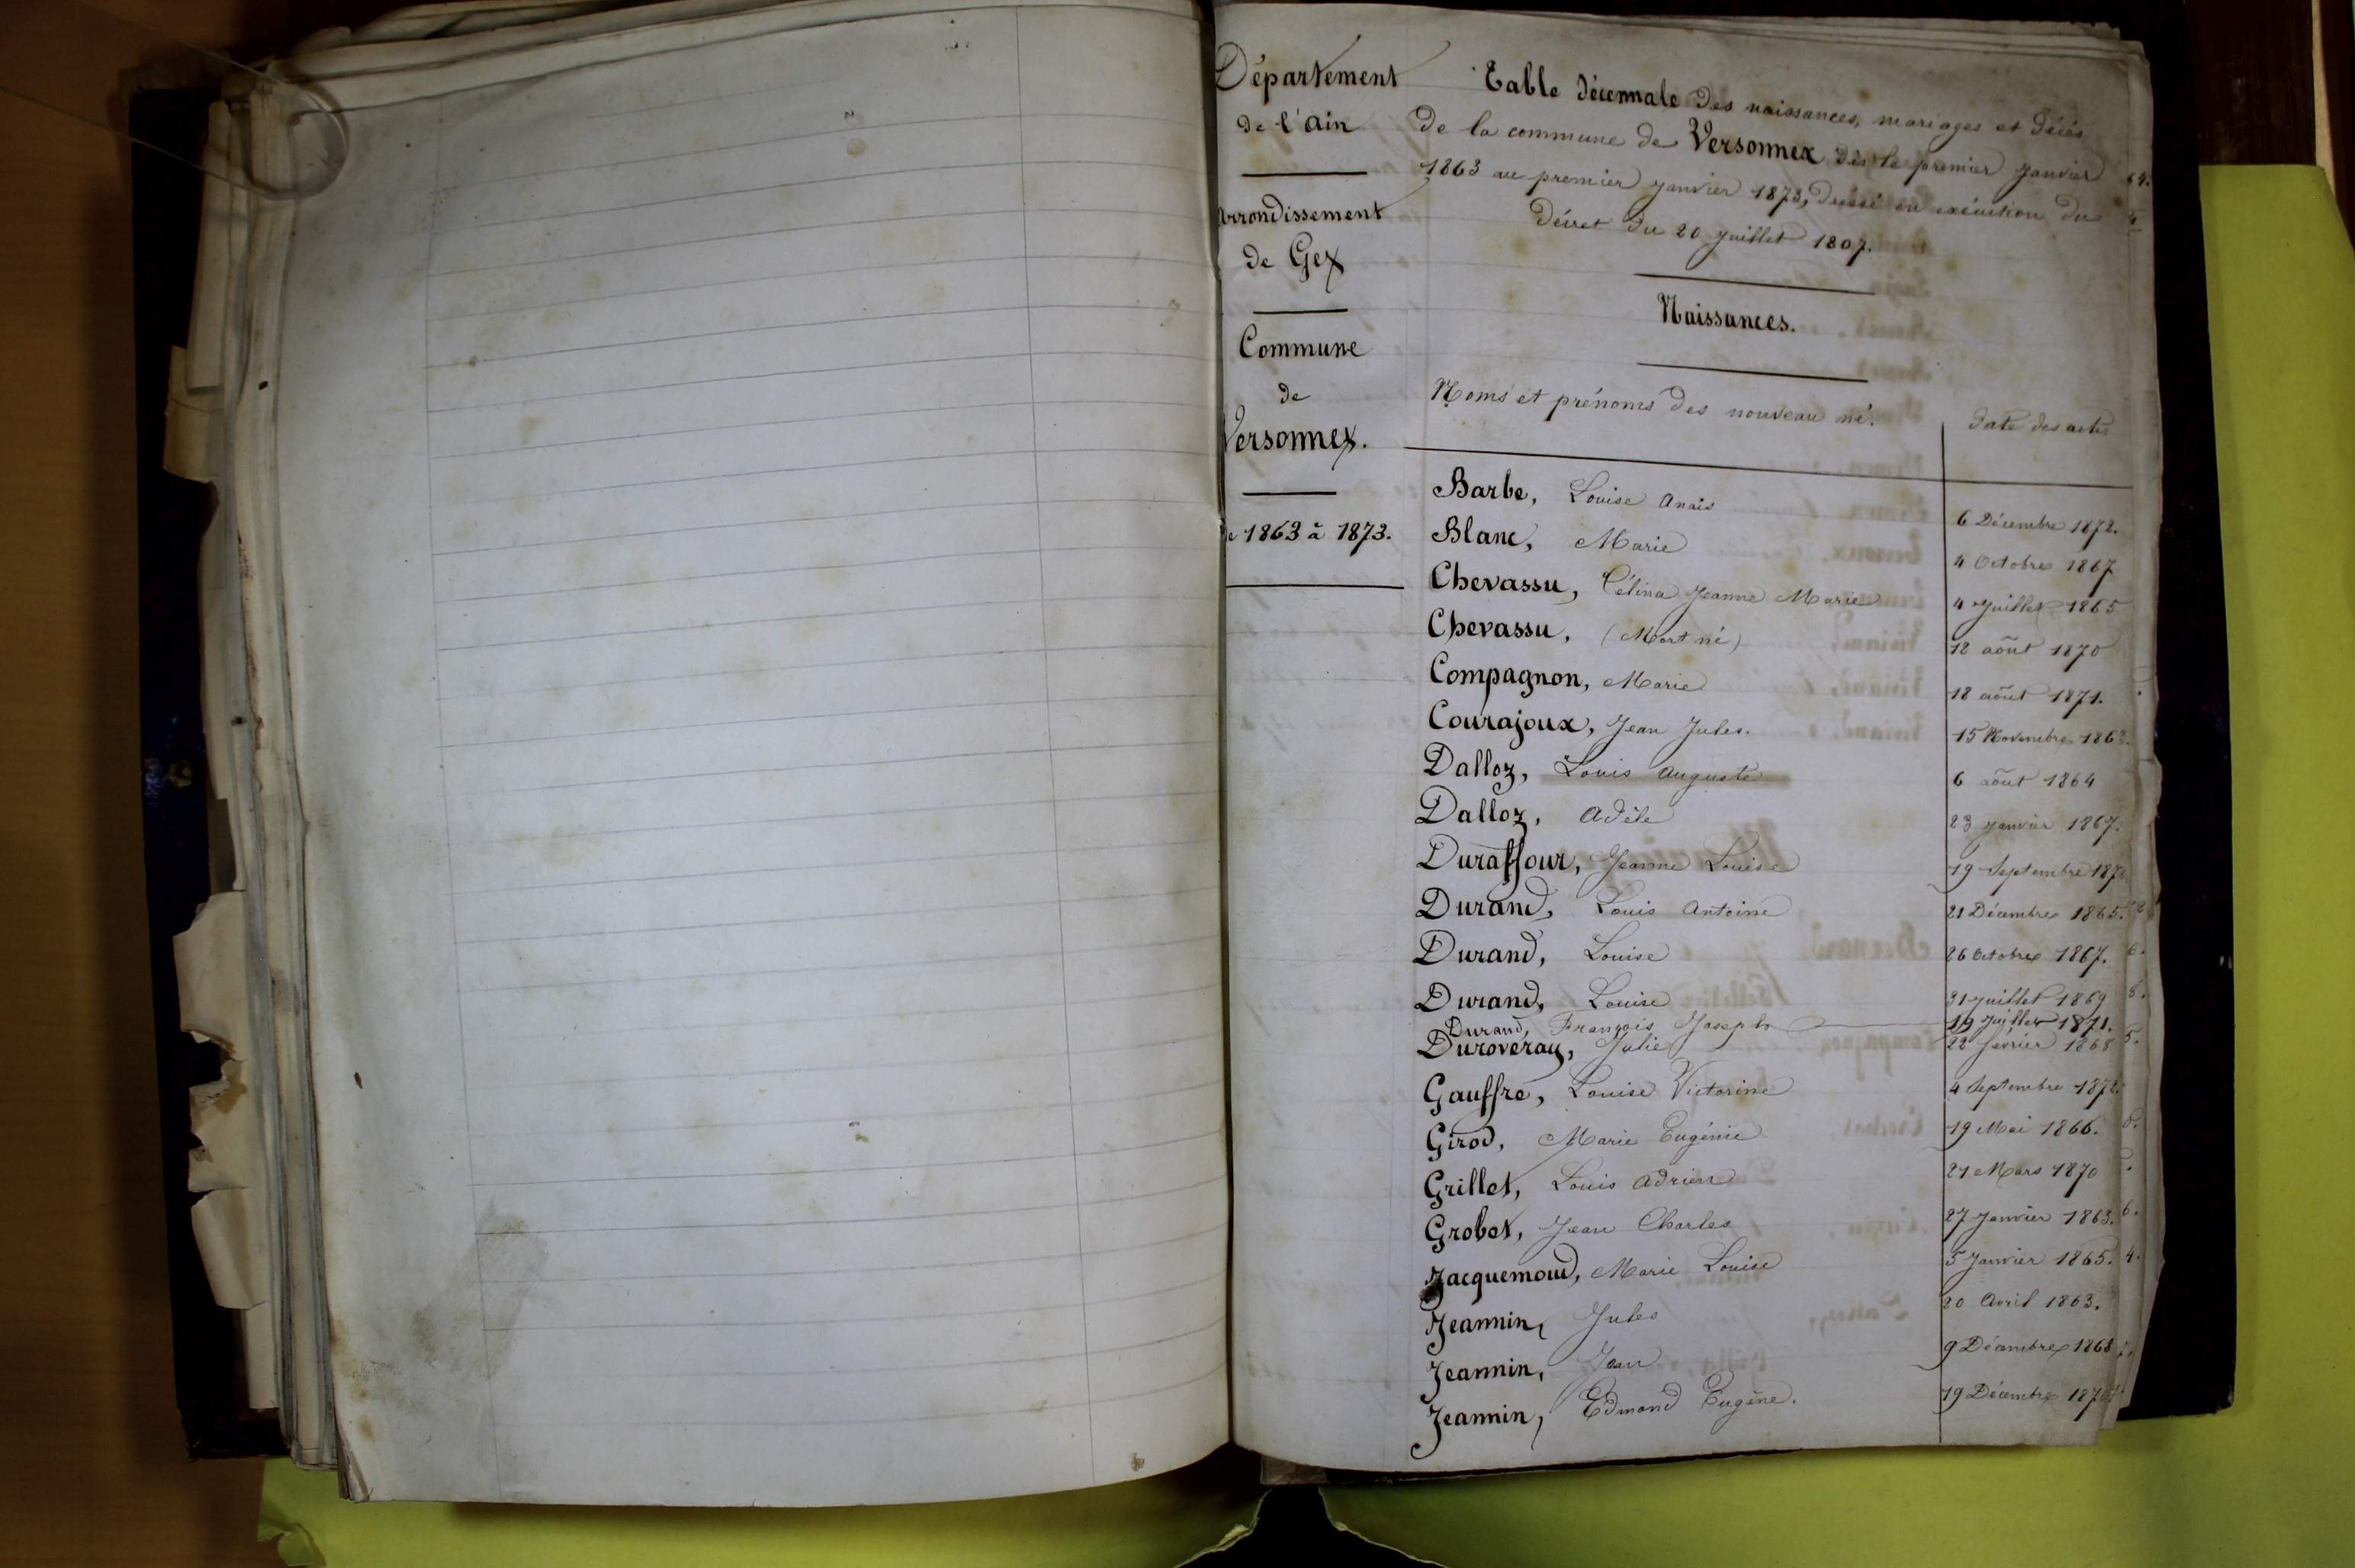 Département
de l'Ain
Arrondissement
de Gex
Commune
de
Versonnex.
de 1863 à 1873.
Table décennale des naissances, mariages et décès
de la commune de Versonnex dès le premier janvier
1863 au premier janvier 1873, dressé en exécution du
décret du 20 juillet 1807.
Naissances.
Noms et prénoms des nouveau né. Date des actes
Barbe, Louise Anais 6 Décembre 1872.
Blanc, Marie 4 Octobre 1867
Chevassu, Célina Jeanne Marie 4 Juillet 1865
Chevassu, (Mort né) 12 août 1870
Compagnon, Marie 18 août 1871.
Courajoux, Jean Jules. 15 Novembre 1863.
Dalloz, Louis Auguste 6 août 1864
Dalloz, Adèle 23 janvier 1867.
Duraffour, Jeanne Louise 19 Septembre
Durand, Louis Antoine 21 Décembre 1865.
Durand, Louise 26 Octobre 1867.
Durand, Louise 31 juillet 1869
Durand, François Joseph 19 Juillet 1871.
Duroveray, Julie 22 février 1868
Gauffre, Louise Victorine 4 Septembre 1872.
Girod, Marie Eugénie 19 Mai 1866.
Grillet, Louis Adrien 21 Mars 1870
Grobet, Jean Charles 27 Janvier 1863.
Jacquemoud, Marie Louise 5 Janvier 1865.
Jeannin, Jules 20 Avril 1863.
Jeannin, Jean 9 Décembre 1868
Jeannin, Edmond Eugène. 19 Décembre